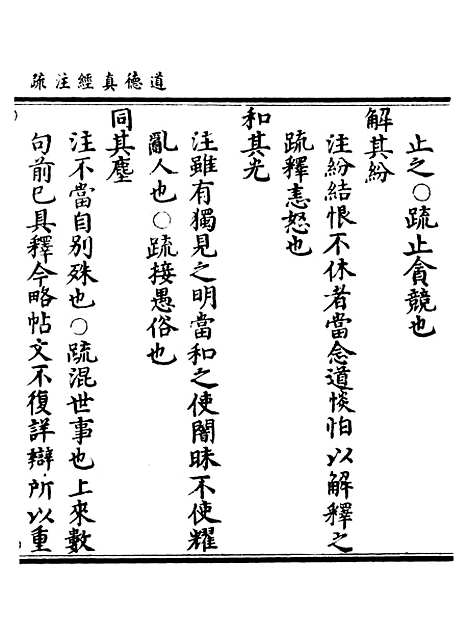 道德真經注疏
止之○疏止貪競也
解其紛
注紛結恨不休者當念道惔怕以解釋之
疏釋恚怒也
和其光
注雖有獨見之明當和之使闇昧不使耀
亂人也○疏接愚俗也
同其塵
注不當自别殊也○疏混世事也上來數
句前巳具釋今略帖文不復詳辯所以重